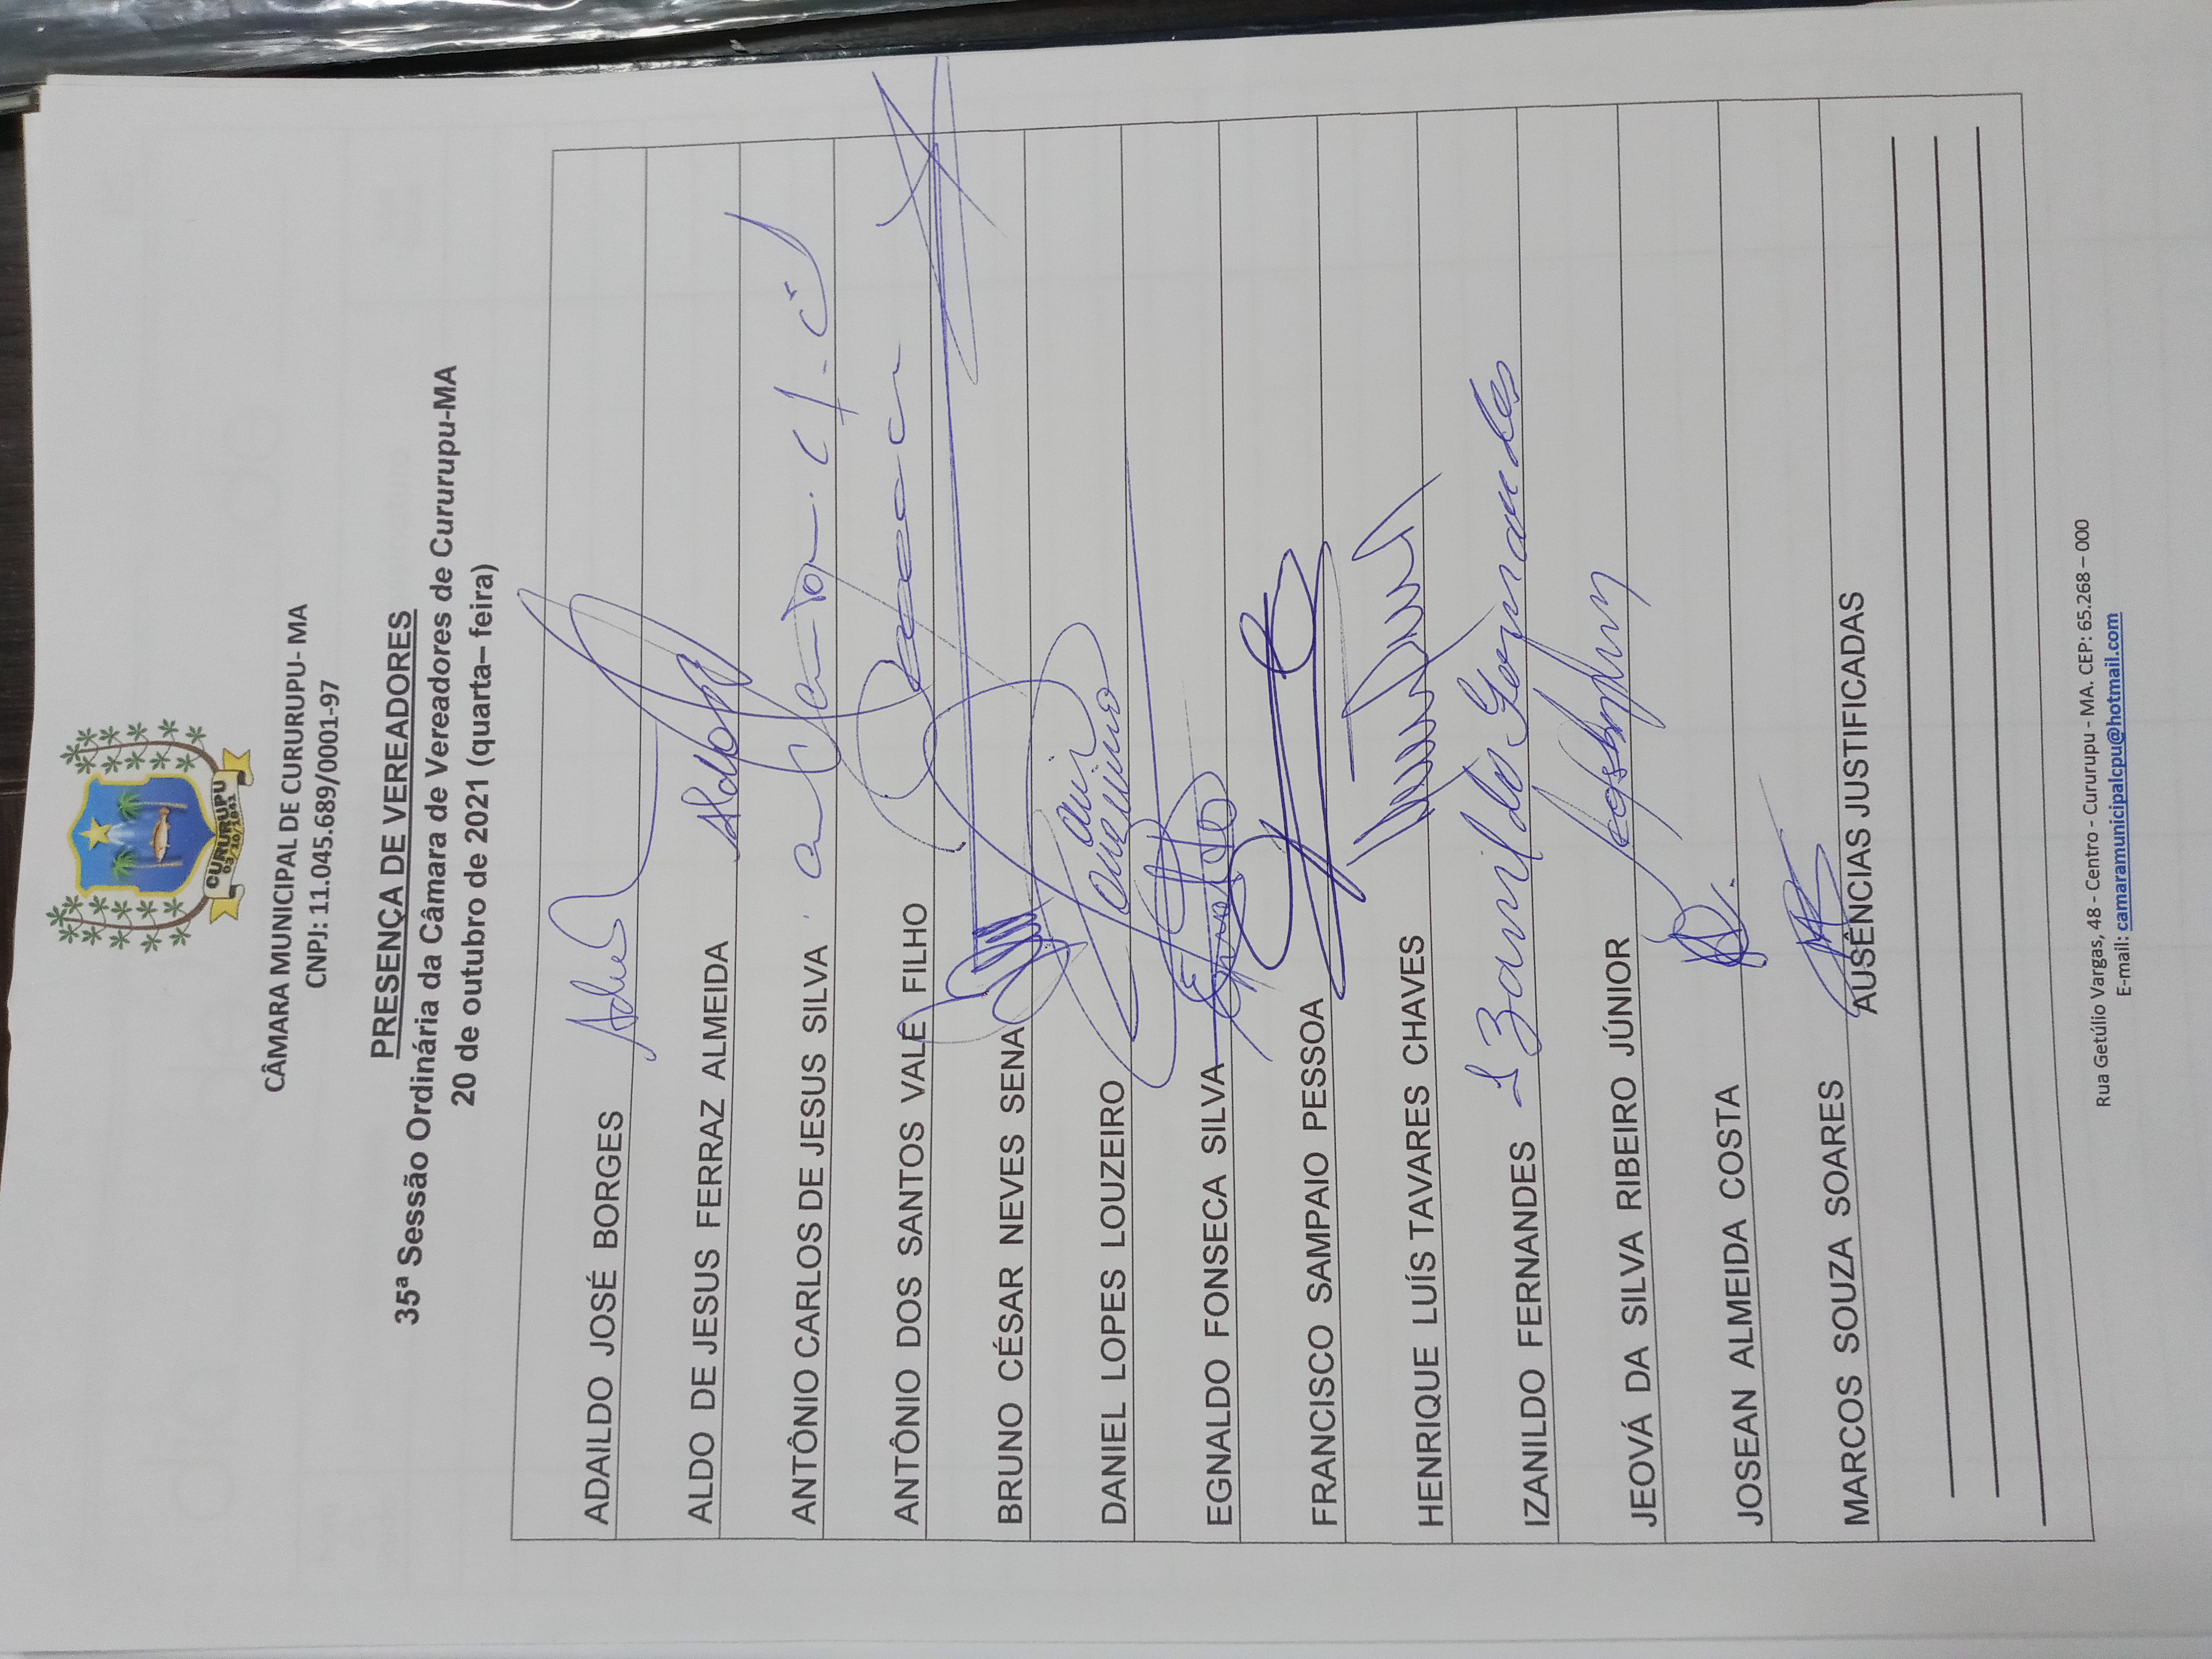 CURURUPU
03/10/1841
CÂMARA MUNICIPAL DE CURURUPU- MA
CNPJ: 11.045.689/0001-97
PRESENÇA DE VEREADORES
35ª Sessão Ordinária da Câmara de Vereadores de Cururupu-MA
20 de outubro de 2021 (quarta– feira)
ADAILDO JOSÉ BORGES
ALDO DE JESUS FERRAZ ALMEIDA
ANTÔNIO CARLOS DE JESUS SILVA
ANTÔNIO DOS SANTOS VALE FILHO
BRUNO CÉSAR NEVES SENA
DANIEL LOPES LOUZEIRO
EGNALDO FONSECA SILVA
FRANCISCO SAMPAIO PESSOA
HENRIQUE LUÍS TAVARES CHAVES
IZANILDO FERNANDES Izanildo Fernandes
JEOVÁ DA SILVA RIBEIRO JÚNIOR
JOSEAN ALMEIDA COSTA
MARCOS SOUZA SOARES
AUSÊNCIAS JUSTIFICADAS
Rua Getúlio Vargas, 48 - Centro - Cururupu - MA. CEP: 65.268 – 000
E-mail: camaramunicipalcpu@hotmail.com